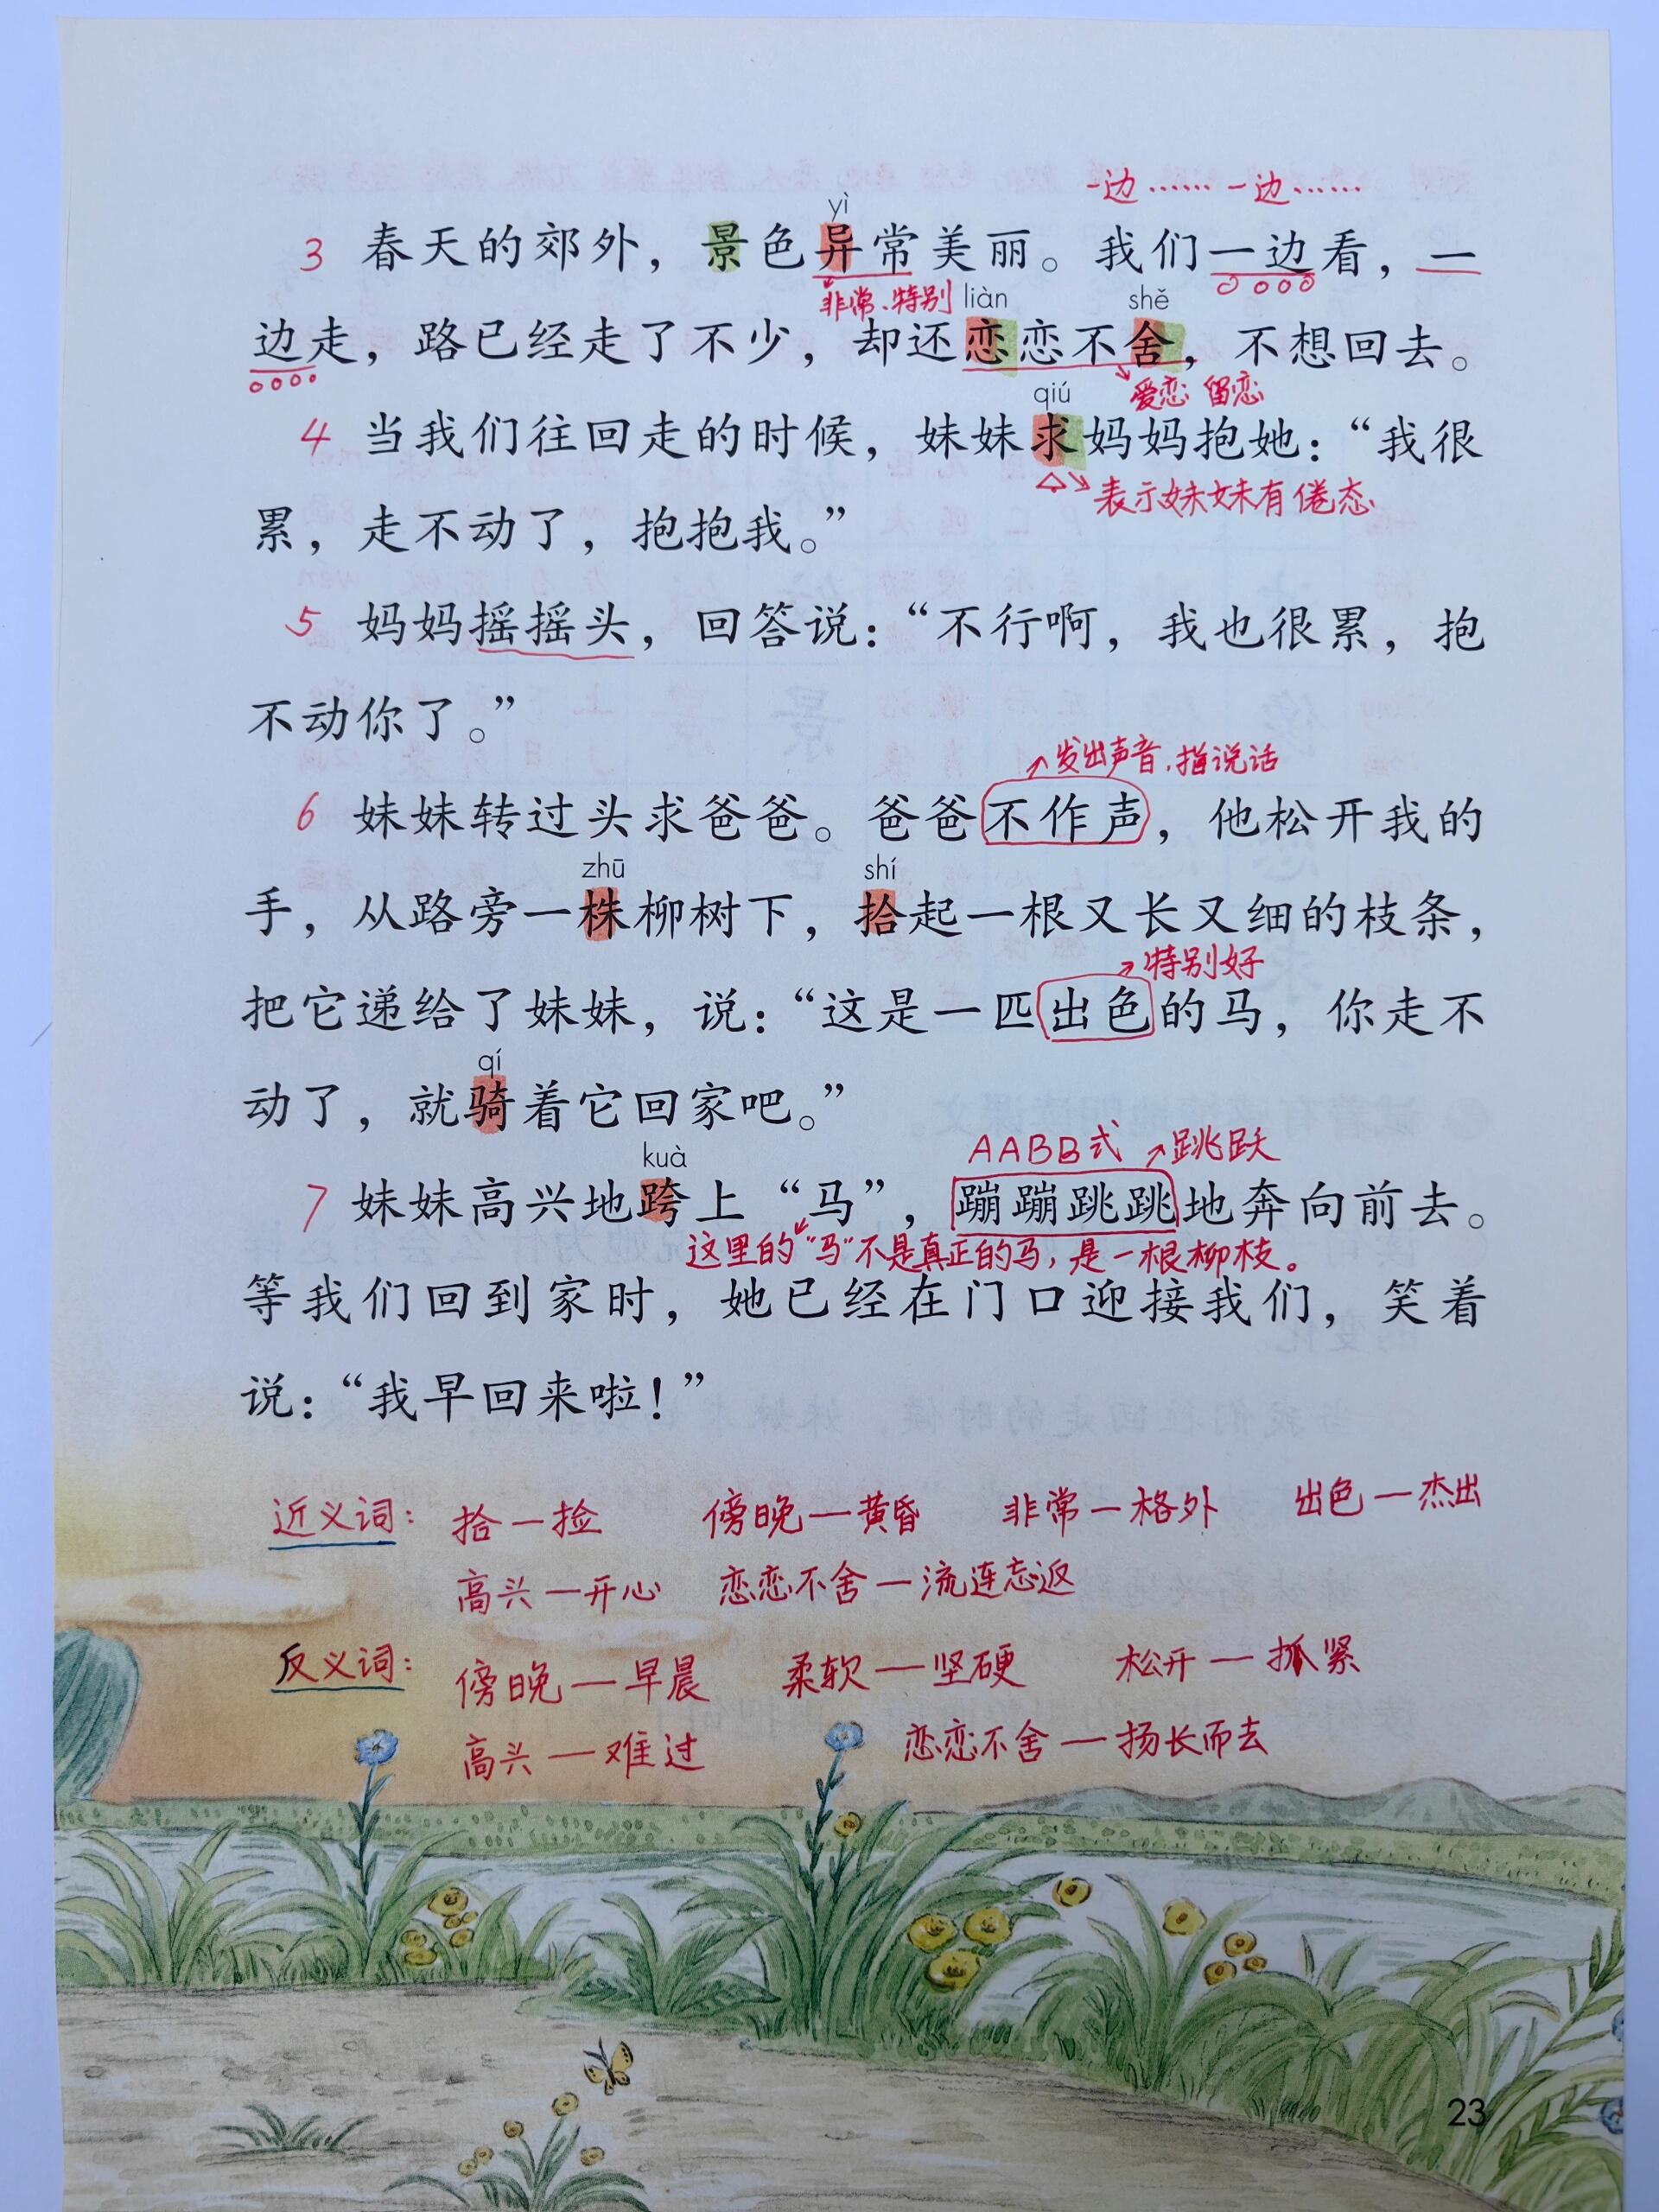 一边……一边……
yì
3 春天的郊外，景色异常美丽。我们一边看，一
非常、特别
liàn shě
边走，路已经走了不少，却还恋恋不舍，不想回去。
爱恋 留恋
qiú
4 当我们往回走的时候，妹妹求妈妈抱她：“我很
表示妹妹有倦态
累，走不动了，抱抱我。”
5 妈妈摇摇头，回答说：“不行啊，我也很累，抱
不动你了。”
发出声音，指说话
6 妹妹转过头求爸爸。爸爸不作声，他松开我的
zhū shí
手，从路旁一株柳树下，拾起一根又长又细的枝条，
特别好
把它递给了妹妹，说：“这是一匹出色的马，你走不
qí
动了，就骑着它回家吧。”
AABB式 跳跃
kuà
7 妹妹高兴地跨上“马”，蹦蹦跳跳地奔向前去。
这里的“马”不是真正的马，是一根柳枝。
等我们回到家时，她已经在门口迎接我们，笑着
说：“我早回来啦！”
近义词： 拾—捡 傍晚—黄昏 非常—格外 出色—杰出
高兴—开心 恋恋不舍—流连忘返
反义词： 傍晚—早晨 柔软—坚硬 松开—抓紧
高兴—难过 恋恋不舍—扬长而去
23